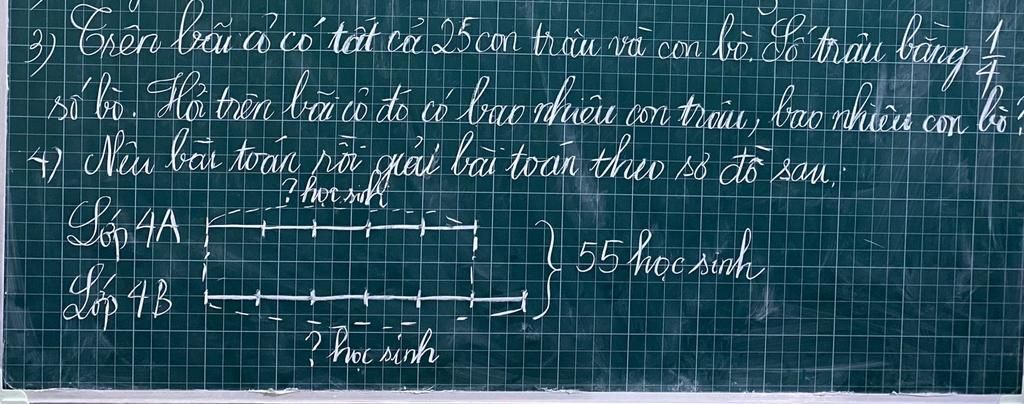 3) Trên bãi cỏ có tất cả 25 con trâu và con bò. Số trâu bằng 1/4
số bò. Hỏi trên bãi cỏ đó có bao nhiêu con trâu, bao nhiêu con bò?
4) Nêu bài toán rồi giải bài toán theo sơ đồ sau:
? học sinh
Lớp 4A
55 học sinh
Lớp 4B
? học sinh